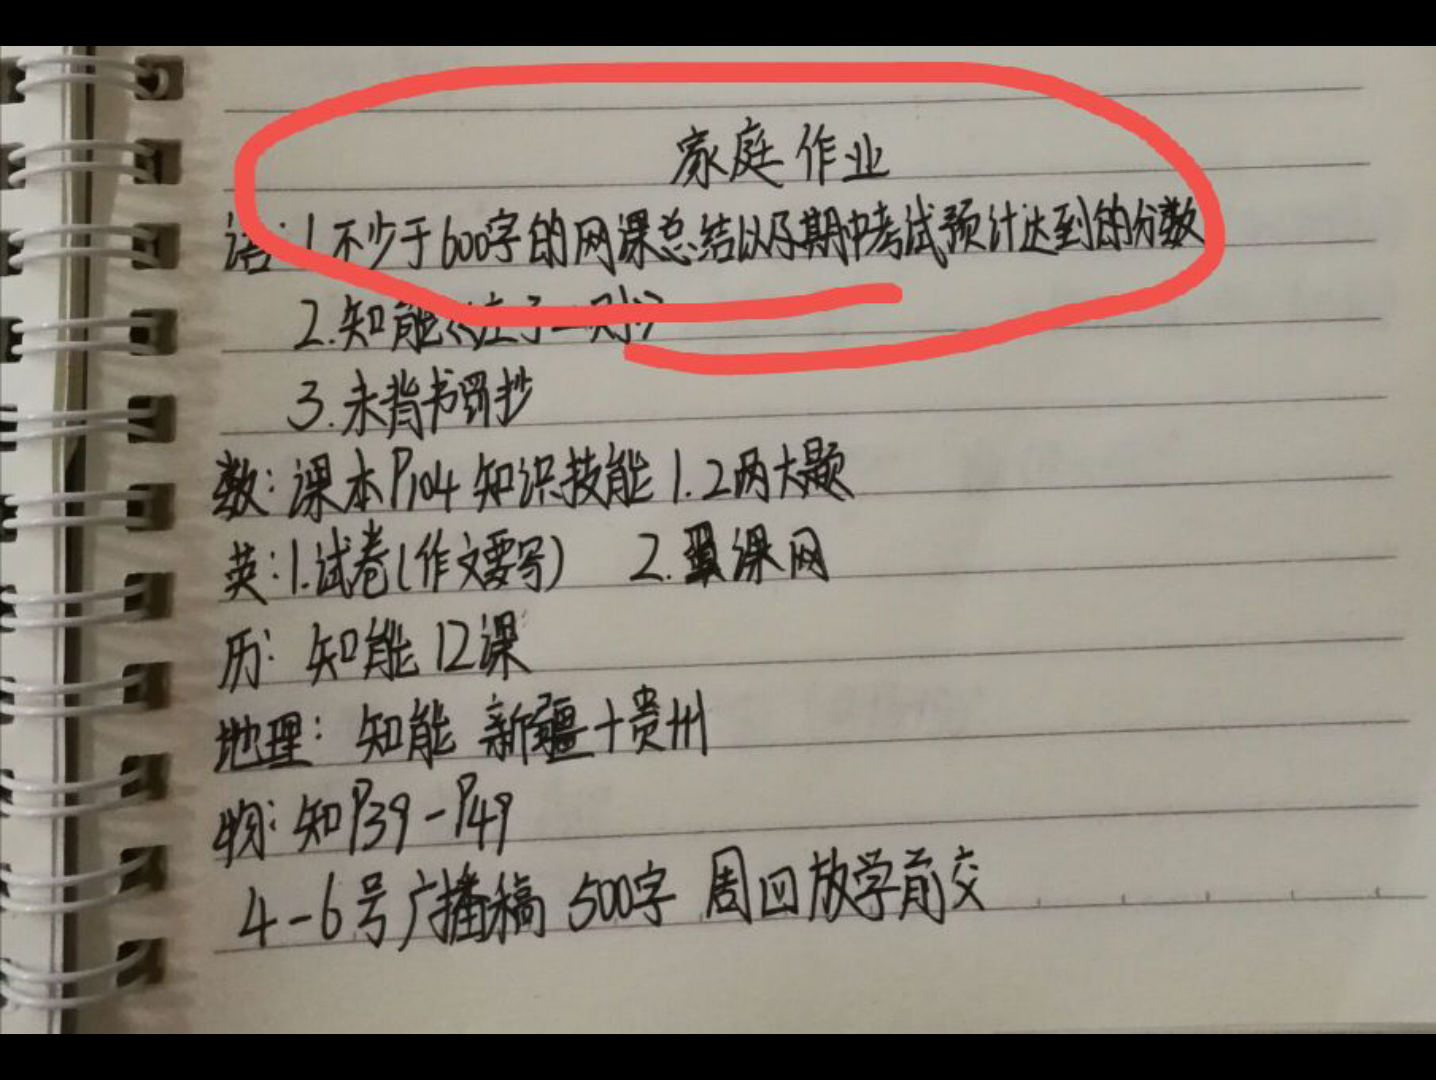 家庭作业
语：1.不少于600字的网课总结以及期中考试预计达到的分数
2.知能《庄子一则》
3.未背书罚抄
数：课本P104 知识技能 1.2两大题
英：1.试卷（作文要写） 2.翼课网
历：知能 12课
地理：知能 新疆+贵州
物：知P39-P49
4-6号广播稿 500字 周四放学前交